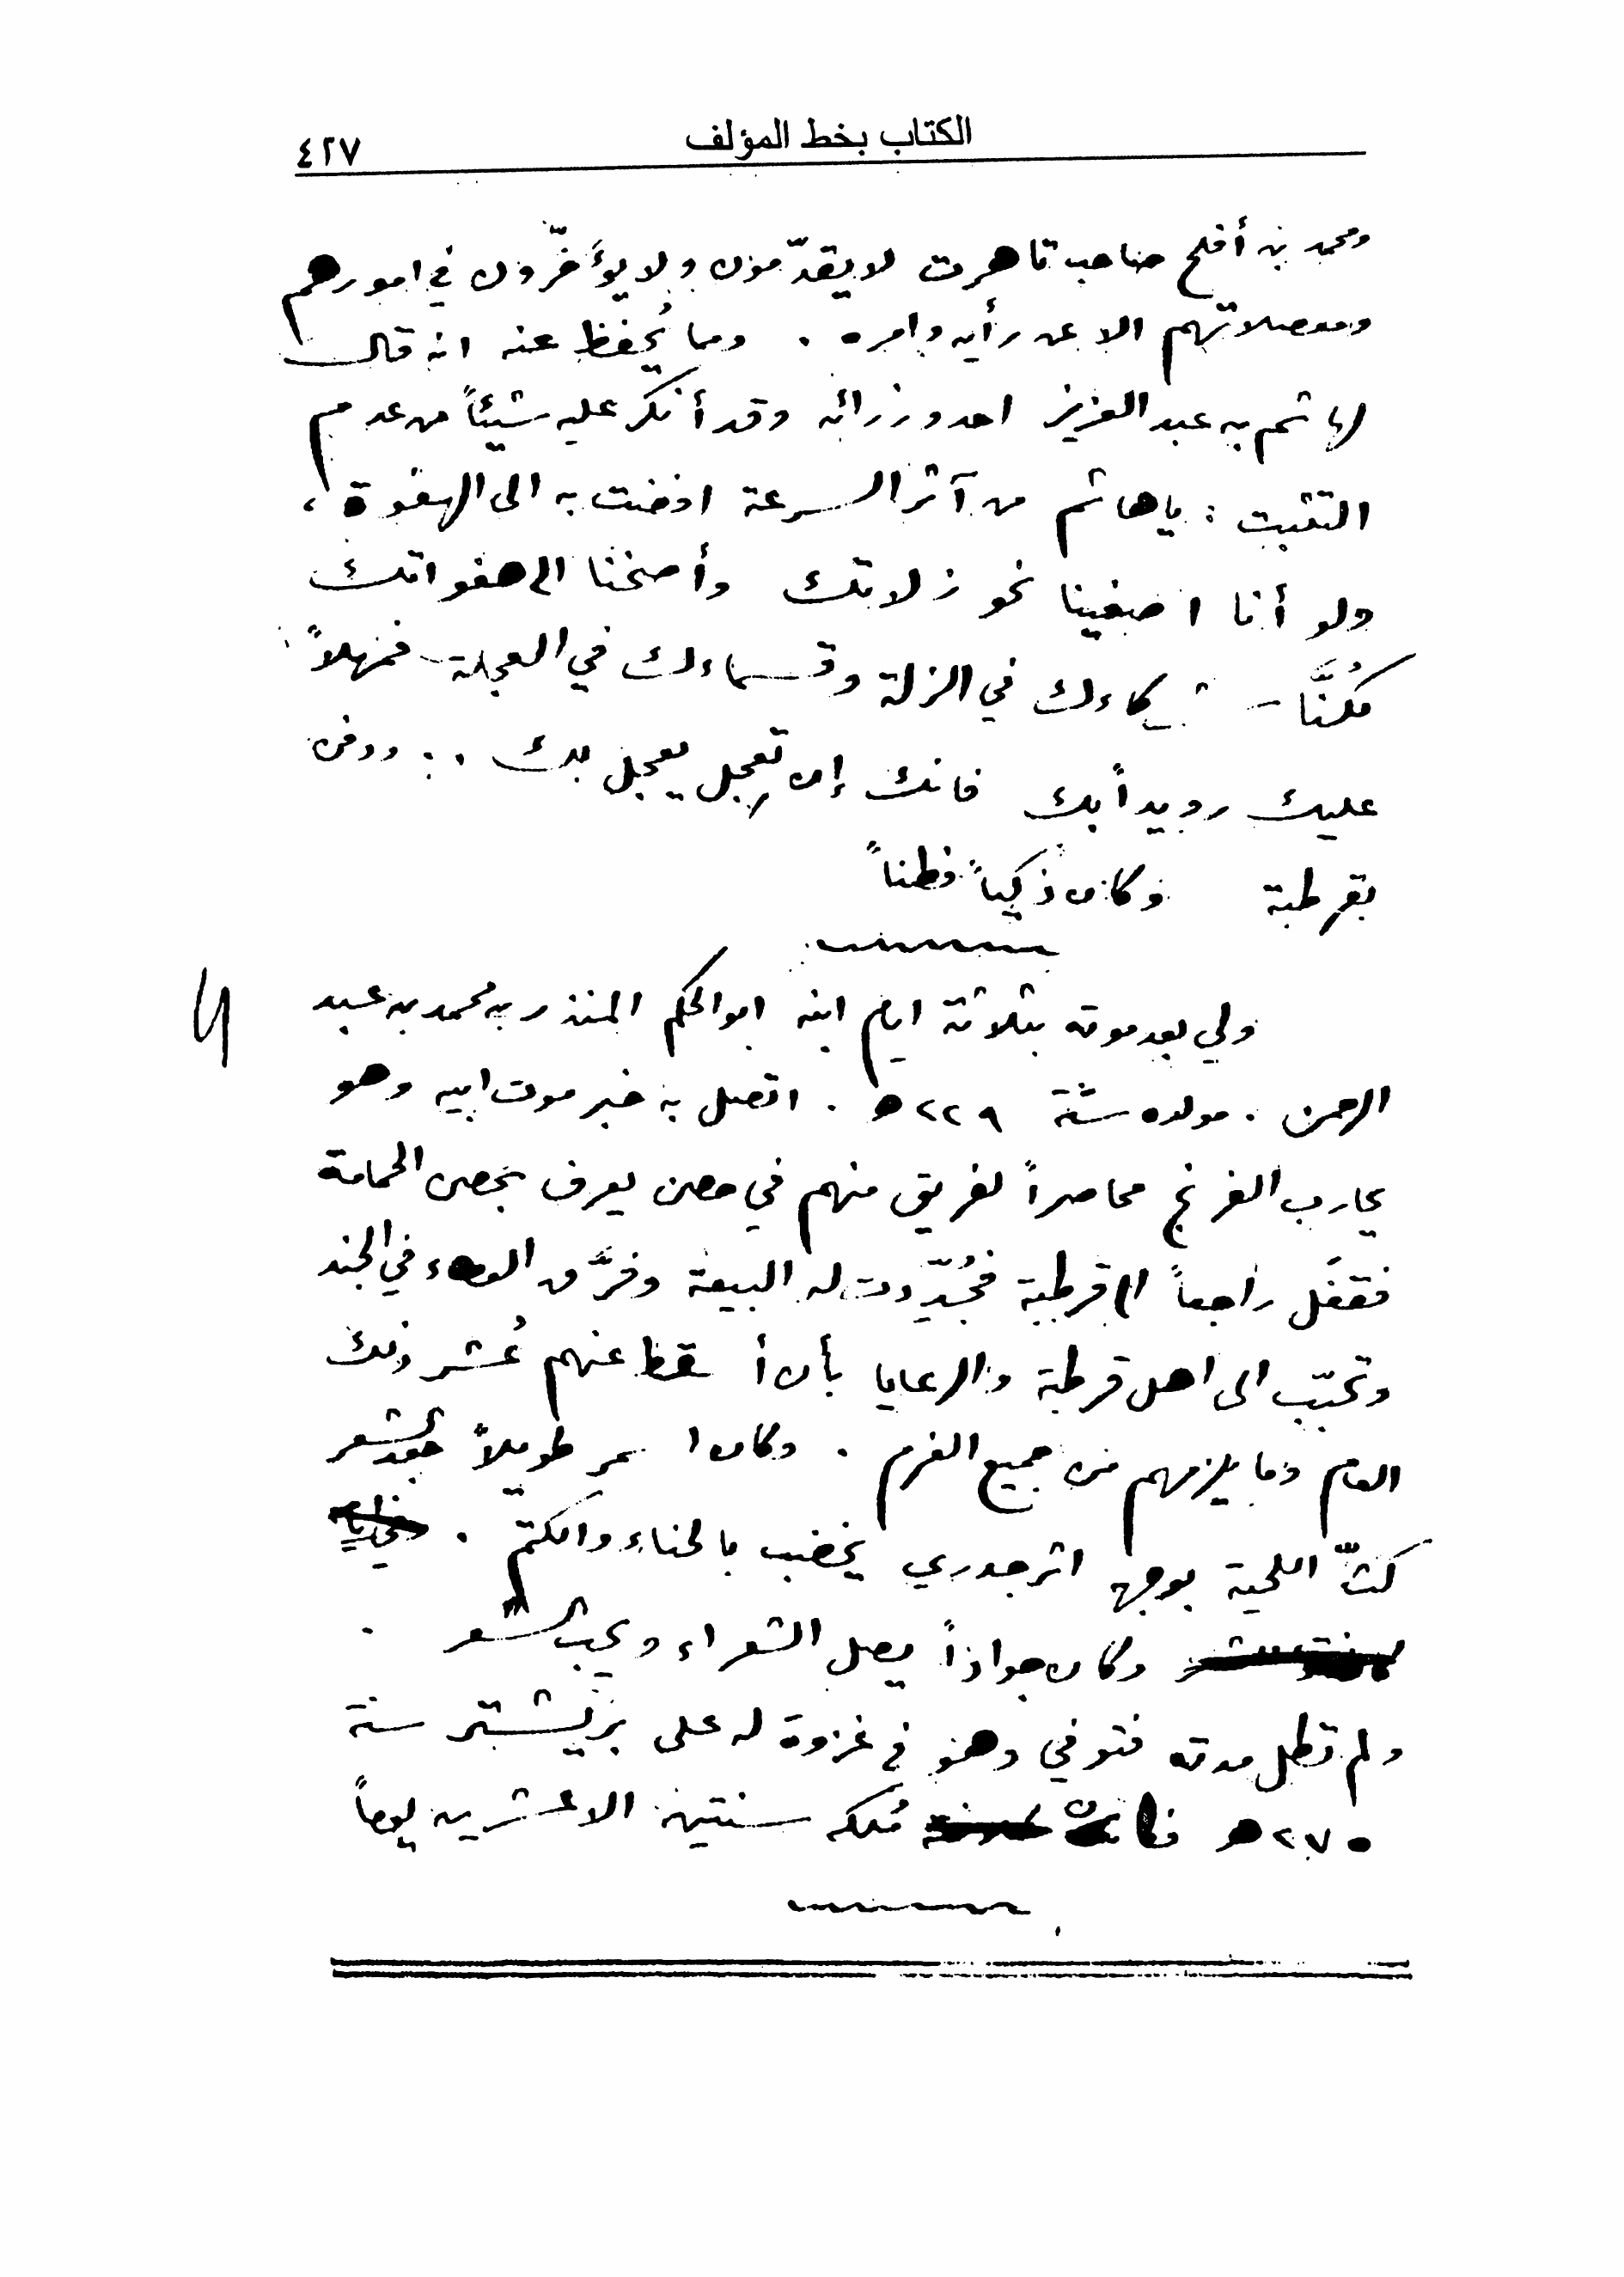 الكتاب بخط المؤلف ٤٢٧
ومحمد بن أفلح صاحب تاهرت لا يقدّمون ولا يؤخّرون في امورهم
ومعضلاتهم الا عن رأيه وامره . ومما يُحفظ عنه انه قال
لهاشم بن عبد العزيز احد وزرائه وقد أنكر عليه شيئاً من عدم
التثبت : يا هاشم من آثر السرعة افضت به الى الهفوة ،
ولو أنا اصغينا نحو زلاتك وأصخنا الى هفواتك
لكُنَّا شركاءك في الزلة وقسماءك في العجلة فمهلاً
عليك رويداً بك فانك إن تعجل يعجل بك .. ودفن
بقرطبة وكان ذكياً فطناً
ولي بعد موته بثلاثة ايام ابنه ابو الحكم المنذر بن محمد بن عبد
الرحمن . مولده سنة ٢٢٩ هـ . اتصل به خبر موت ابيه وهو
يحارب الفرنج محاصراً لفريق منهم في حصن يعرف بحصن الحمامة
فقفَل راجعاً الى قرطبة فجُدّدت له البيعة وفرَّق العطاء في الجند
وتحبّب الى اهل قرطبة والرعايا بأن أسقط عنهم عُشر ذلك
العام وما يلزمهم من جميع الغرم . وكان اسمر طويلاً جعد الشعر
كثّ اللحية بوجهه اثر جدري يخضب بالحناء والكتم .
وكان جواداً يصل الشعراء ويحب الشعر .
ولم تطل مدته فتوفي وهو في غزوة له على بربشتر سنة
٢٧٥ هـ فكان مُلكه سنتين الا عشرين يوماً